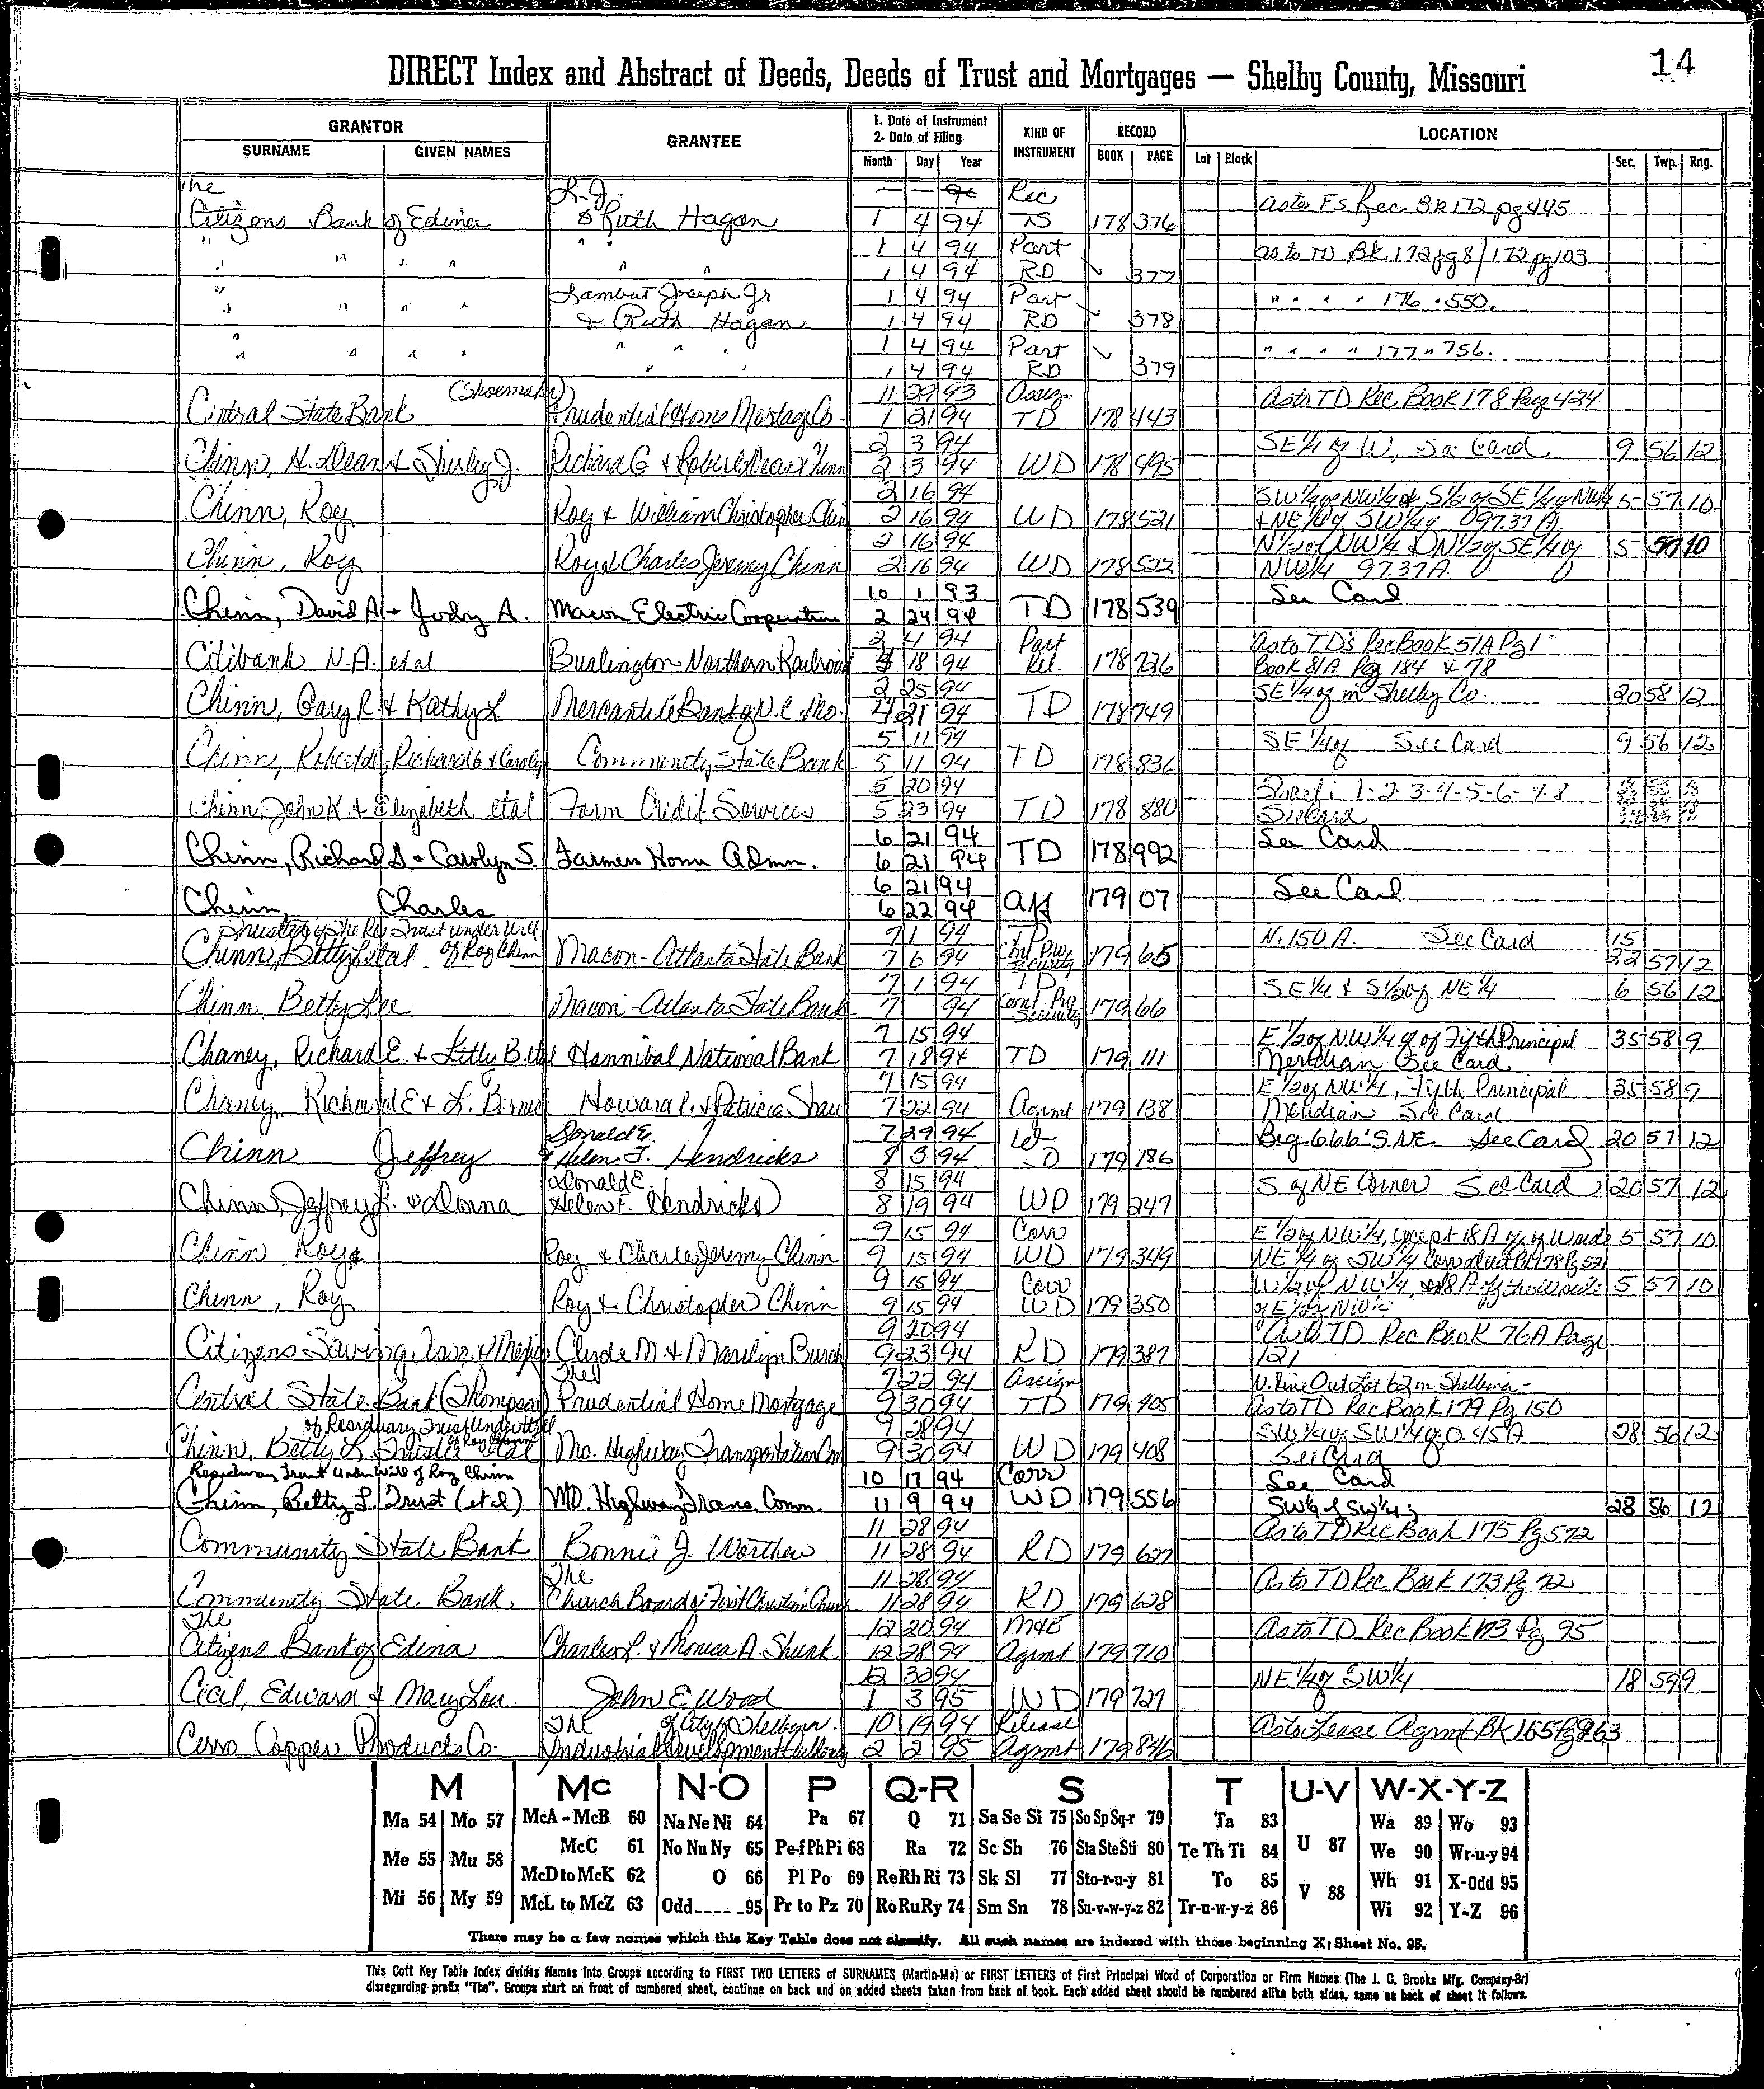 14
DIRECT Index and Abstract of Deeds, Deeds of Trust and Mortgages — Shelby County, Missouri
GRANTOR
SURNAME GIVEN NAMES
GRANTEE
1. Date of Instrument
2. Date of Filing
Month Day Year
KIND OF INSTRUMENT
RECORD
BOOK PAGE
LOCATION
Lot Block Sec. Twp. Rng.
The Rec as to FS Rec. BK 172 pg 445
Citizens Bank of Edina & Ruth Hagan 1 4 94 178 376
" " " " " " 1 4 94 Part as to TD Bk 172 pg 8/172 pg 103
1 4 94 RD 377
" " " " Lambert Joseph Jr 1 4 94 Part " " " " 176 " 550.
& Ruth Hagan 1 4 94 RD 378
" " " " " " " 1 4 94 Part " " " " 177 " 756.
1 4 94 RD 379
(Shoemaker) 11 22 93 Assign. As to TD Rec Book 178 Page 424
Central State Bank Prudential Home Mortage Co. 1 21 94 TD 178 443
2 3 94 SE 1/4 of W, See Card 9 56 12
Chinn, H. Dean & Shirley J. Richard G & Robert Dean Chinn 2 3 94 WD 178 495
2 16 94 SW 1/4 of NW 1/4 & S 1/2 of SE 1/4 of NW 1/4 5 57 10
Chinn, Roy Roy & William Christopher Chin 2 16 94 WD 178 521 & NE 1/4 of SW 1/4 97.37 A.
2 16 94 N 1/2 of NW 1/4 & N 1/2 of SE 1/4 of 5 57 10
Chinn, Roy Roy & Charles Jeremy Chinn 2 16 94 WD 178 522 NW 1/4 97.37 A.
10 1 93 See Card
Chinn, David A & Jody A. Macon Electric Cooperative 2 24 94 TD 178 539
2 4 94 Part As to TD's Rec Book 51A Pg 1
Citibank N.A. etal Burlington Northern Railroad 4 18 94 Rel. 178 726 Book 81A Pg 184 & 78
2 25 94 SE 1/4 of m Shelby Co. 20 58 12
Chinn, Gary R. & Kathy L Mercantile Bank of N.C. Mo. 4 21 94 TD 178 749
5 11 94 SE 1/4 of See Card 9 56 12
Chinn, Richard G & Carolyn Community State Bank 5 11 94 TD 178 836
5 20 94 1-2-3-4-5-6-7-8
Chinn, John K. & Elizabeth etal Farm Credit Services 5 23 94 TD 178 880 See Card
6 21 94 See Card
Chinn, Richard G & Carolyn S. Farmers Home Admn. 6 21 94 TD 178 992
6 21 94 See Card
Chinn, Charles 6 22 94 Aff 179 07
Trustee of the Res Trust under Will 7 1 94 TD N. 150 A. See Card 15
Chinn, Betty L etal of Roy Chinn Macon-Atlanta State Bank 7 6 94 Security 179 65 22 57 12
7 1 94 TD SE 1/4 & S 1/2 of NE 1/4 6 56 12
Chinn, Betty Lee Macon-Atlanta State Bank 7 94 Security 179 66
7 15 94 E 1/2 of NW 1/4 of Fifth Principal 35 58 9
Chaney, Richard E. & Letty B. etal Hannibal National Bank 7 18 94 TD 179 111 Meridian See Card
7 15 94 E 1/2 of NW 1/4, Fifth Principal 35 58 9
Chaney, Richard E & L. Howard P. & Patricia 7 22 94 Agmt 179 138 Meridian See Card
Donald E. 7 29 94 W Beg. 666' S NE. See Card 20 57 12
Chinn Jeffrey & Helen F. Hendricks 8 3 94 D 179 186
Donald E. 8 15 94 S of NE Corner See Card 20 57 12
Chinn, Jeffrey L. & Donna Helen F. Hendricks 8 19 94 WD 179 247
9 15 94 Corr E 1/2 of NW 1/4, except 18 A 5 57 10
Chinn, Roy Roy & Charles Jeremy Chinn 9 15 94 WD 179 349 NE 1/4 of SW 1/4
9 15 94 Corr W 1/2 of NW 1/4, 5 57 10
Chinn, Roy Roy & Christopher Chinn 9 15 94 WD 179 350 of E 1/2 of NW 1/4
9 20 94 As to TD Rec Book 76A Page
Citizens Saving Assn. Clyde M & Marilyn Burch 9 23 94 RD 179 387 121
The 9 22 94 Assign N. Line Out Lot 62 in Shelbina -
Central State Bank (Thompson) Prudential Home Mortgage 9 30 94 TD 179 405 as to TD Rec Book 179 Pg 150
of Residuary Trust Under Will 9 28 94 SW 1/4 of SW 1/4 0.45 A 28 56 12
Chinn, Betty L Trustee etal Mo. Highway Transportation Com 9 30 94 WD 179 408 See Card
Residuary Trust Under Will of Roy Chinn 10 17 94 Corr See Card
Chinn, Betty L. Trust (etal) MO. Highway Trans. Comm. 11 9 94 WD 179 556 SW 1/4 of SW 1/4 28 56 12
11 28 94 As to TD Rec Book 175 Pg 572
Community State Bank Bonnie J. Worthen 11 28 94 RD 179 627
The 11 28 94 As to TD Rec Book 173 Pg 72
Community State Bank Church Board of First Christian Church 11 28 94 RD 179 628
The 12 20 94 M&E As to TD Rec Book 173 Pg 95
Citizens Bank of Edina Charles L. & Monica A. Shunk 12 28 94 Agmt 179 710
12 30 94 NE 1/4 of SW 1/4 18 59 9
Cecil, Edward & Mary Lou John E Wood 1 3 95 WD 179 727
The of City of Shelbyna 10 19 94 Release As to Lease Agmt BK 165 Pg 863
Cerro Copper Products Co. Industrial Development Authority 2 2 95 Agmt 179 846
M Mc N-O P Q-R S T U-V W-X-Y-Z
Ma 54 Mo 57 McA-McB 60 Na Ne Ni 64 Pa 67 Q 71 Sa Se Si 75 So Sp Sq-r 79 Ta 83 U 87 Wa 89 Wo 93
Me 55 Mu 58 McC 61 No Nu Ny 65 Pe-f Ph Pi 68 Ra 72 Sc Sh 76 Sta Ste Sti 80 Te Th Ti 84 V 88 We 90 Wr-u-y 94
McD to McK 62 O 66 Pl Po 69 Re Rh Ri 73 Sk Sl 77 Sto-r-u-y 81 To 85 Wh 91 X-Odd 95
Mi 56 My 59 McL to McZ 63 Odd-----95 Pr to Pz 70 Ro Ru Ry 74 Sm Sn 78 Su-v-w-y-z 82 Tr-u-w-y-z 86 Wi 92 Y-Z 96
There may be a few names which this Key Table does not classify. All such names are indexed with those beginning X; Sheet No. 95.
This Cott Key Table Index divides Names into Groups according to FIRST TWO LETTERS of SURNAMES (Martin-Ma) or FIRST LETTERS of First Principal Word of Corporation or Firm Names (The J. C. Brooks Mfg. Company-Br)
disregarding prefix "The". Groups start on front of numbered sheet, continue on back and on added sheets taken from back of book. Each added sheet should be numbered alike both sides, same as back of sheet it follows.